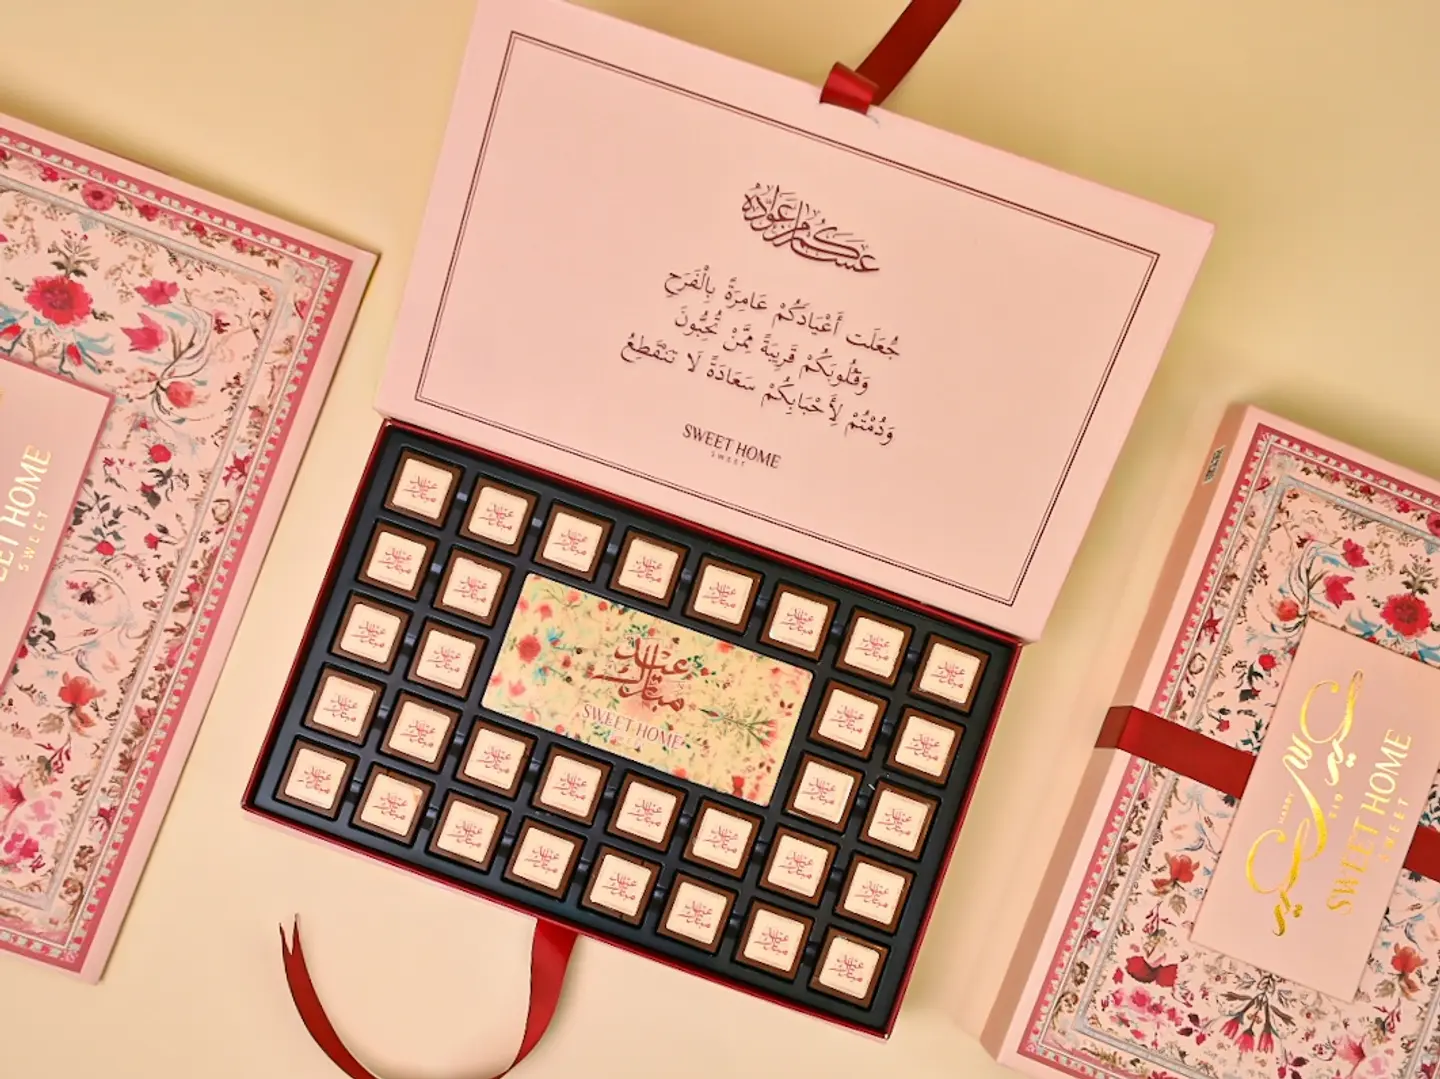 عساكم من عواده
جُعِلَت أَعْيَادَكُمْ عَامِرَةً بِالْفَرَحِ
وَقُلُوبَكُمْ قَرِيبَةً مِمَّنْ تُحِبُّونَ
وَدُمْتُمْ لِأَحْبَابِكُمْ سَعَادَةً لَا تَنْقَطِعُ
SWEET HOME
SWEET
عيد مبارك
SWEET HOME
SWEET HOME
SWEET
عيد سعيد
HAPPY EID
SWEET HOME
SWEET